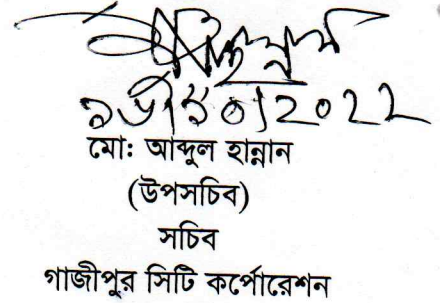 ১৬/১০/২০২২
মো: আব্দুল হান্নান
(উপসচিব)
সচিব
গাজীপুর সিটি কর্পোরেশন